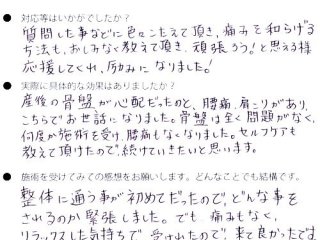 ● 対応等はいかがでしたか？
質問した事などに色々こたえて頂き、痛みを和らげる
方法も、おしみなく教えて頂き、頑張ろう！と思える様
応援してくれ、励みになりました！
● 実際に具体的な効果はありましたか？
産後の骨盤が心配だったのと、腰痛、肩こりがあり、
こちらでお世話になりました。骨盤は全く問題がなく、
何度か施術を受け、腰痛もなくなりました。セルフケアも
教えて頂けたので、続けていきたいと思います。
● 施術を受けてみての感想をお願いします。どんなことでも結構です。
整体に通う事が初めてだったので、どんな事を
されるのか緊張しました。でも、痛みもなく、
リラックスした気持ちで、受けれたので！来て良かったです